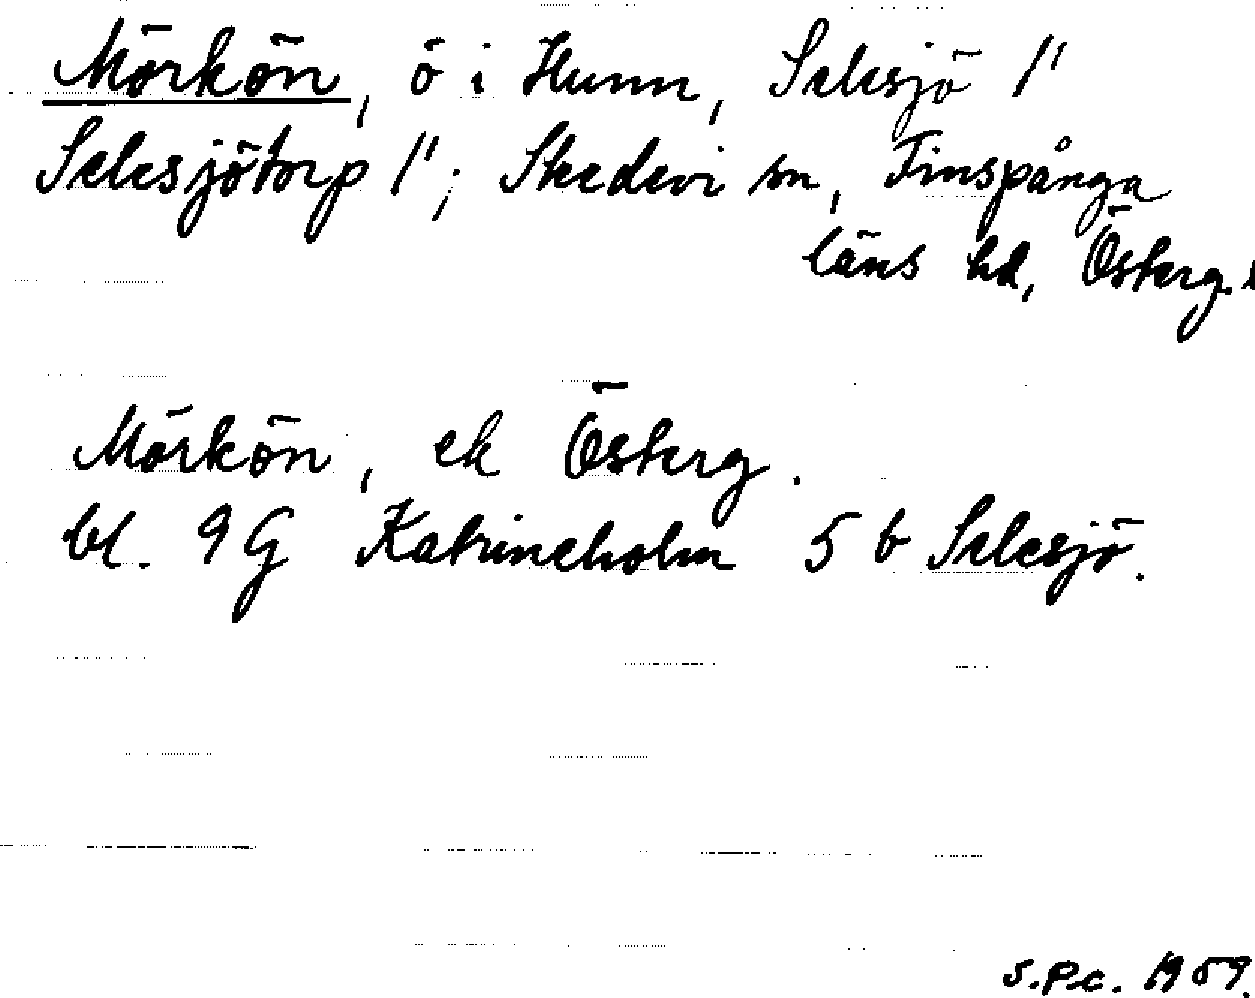 Mörkön, ö i Hunn, Selesjö 1'
Selesjötorp 1'; Skedevi sn, Finspånga
läns hd, Österg.
Mörkön, ek Österg.
bl. 9G Katrineholm 5 b Selesjö.
S.P.C. 1959.